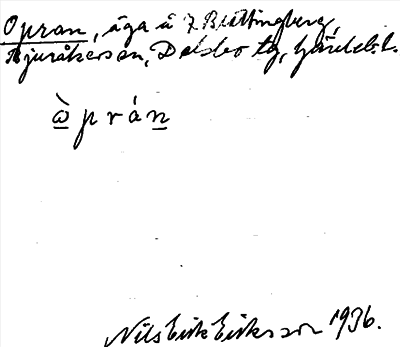 Opran, äga å 7 Brattingberg,
Bjuråkers sn, Delsbo tg, Gävleb. l.
ὼ p r á n
Nils Erik Eriksson 1936.